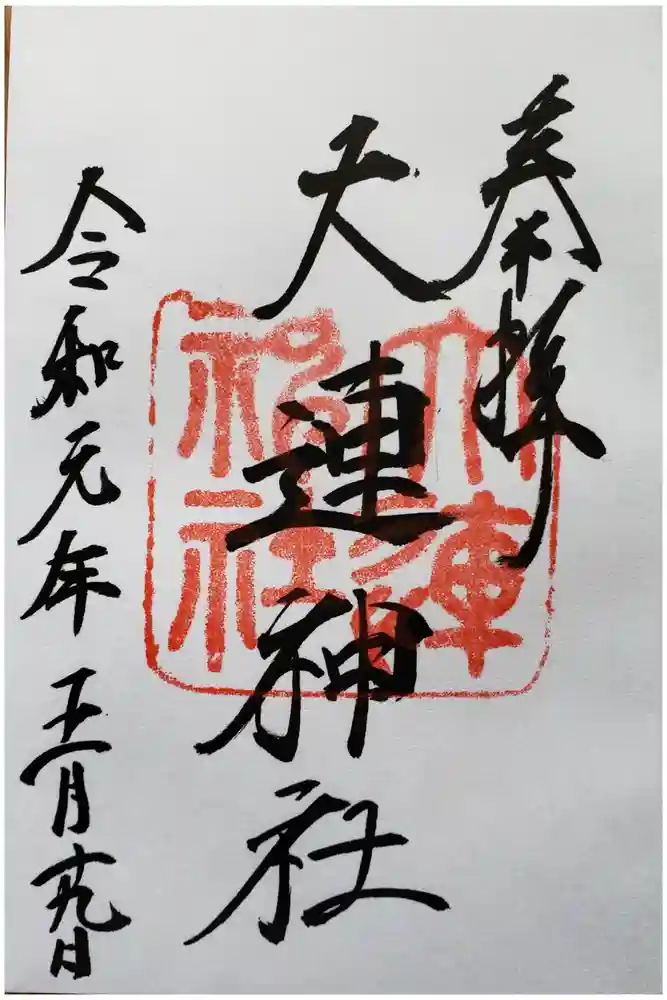 奉拝
天連神社
天連神社
令和元年五月廿九日